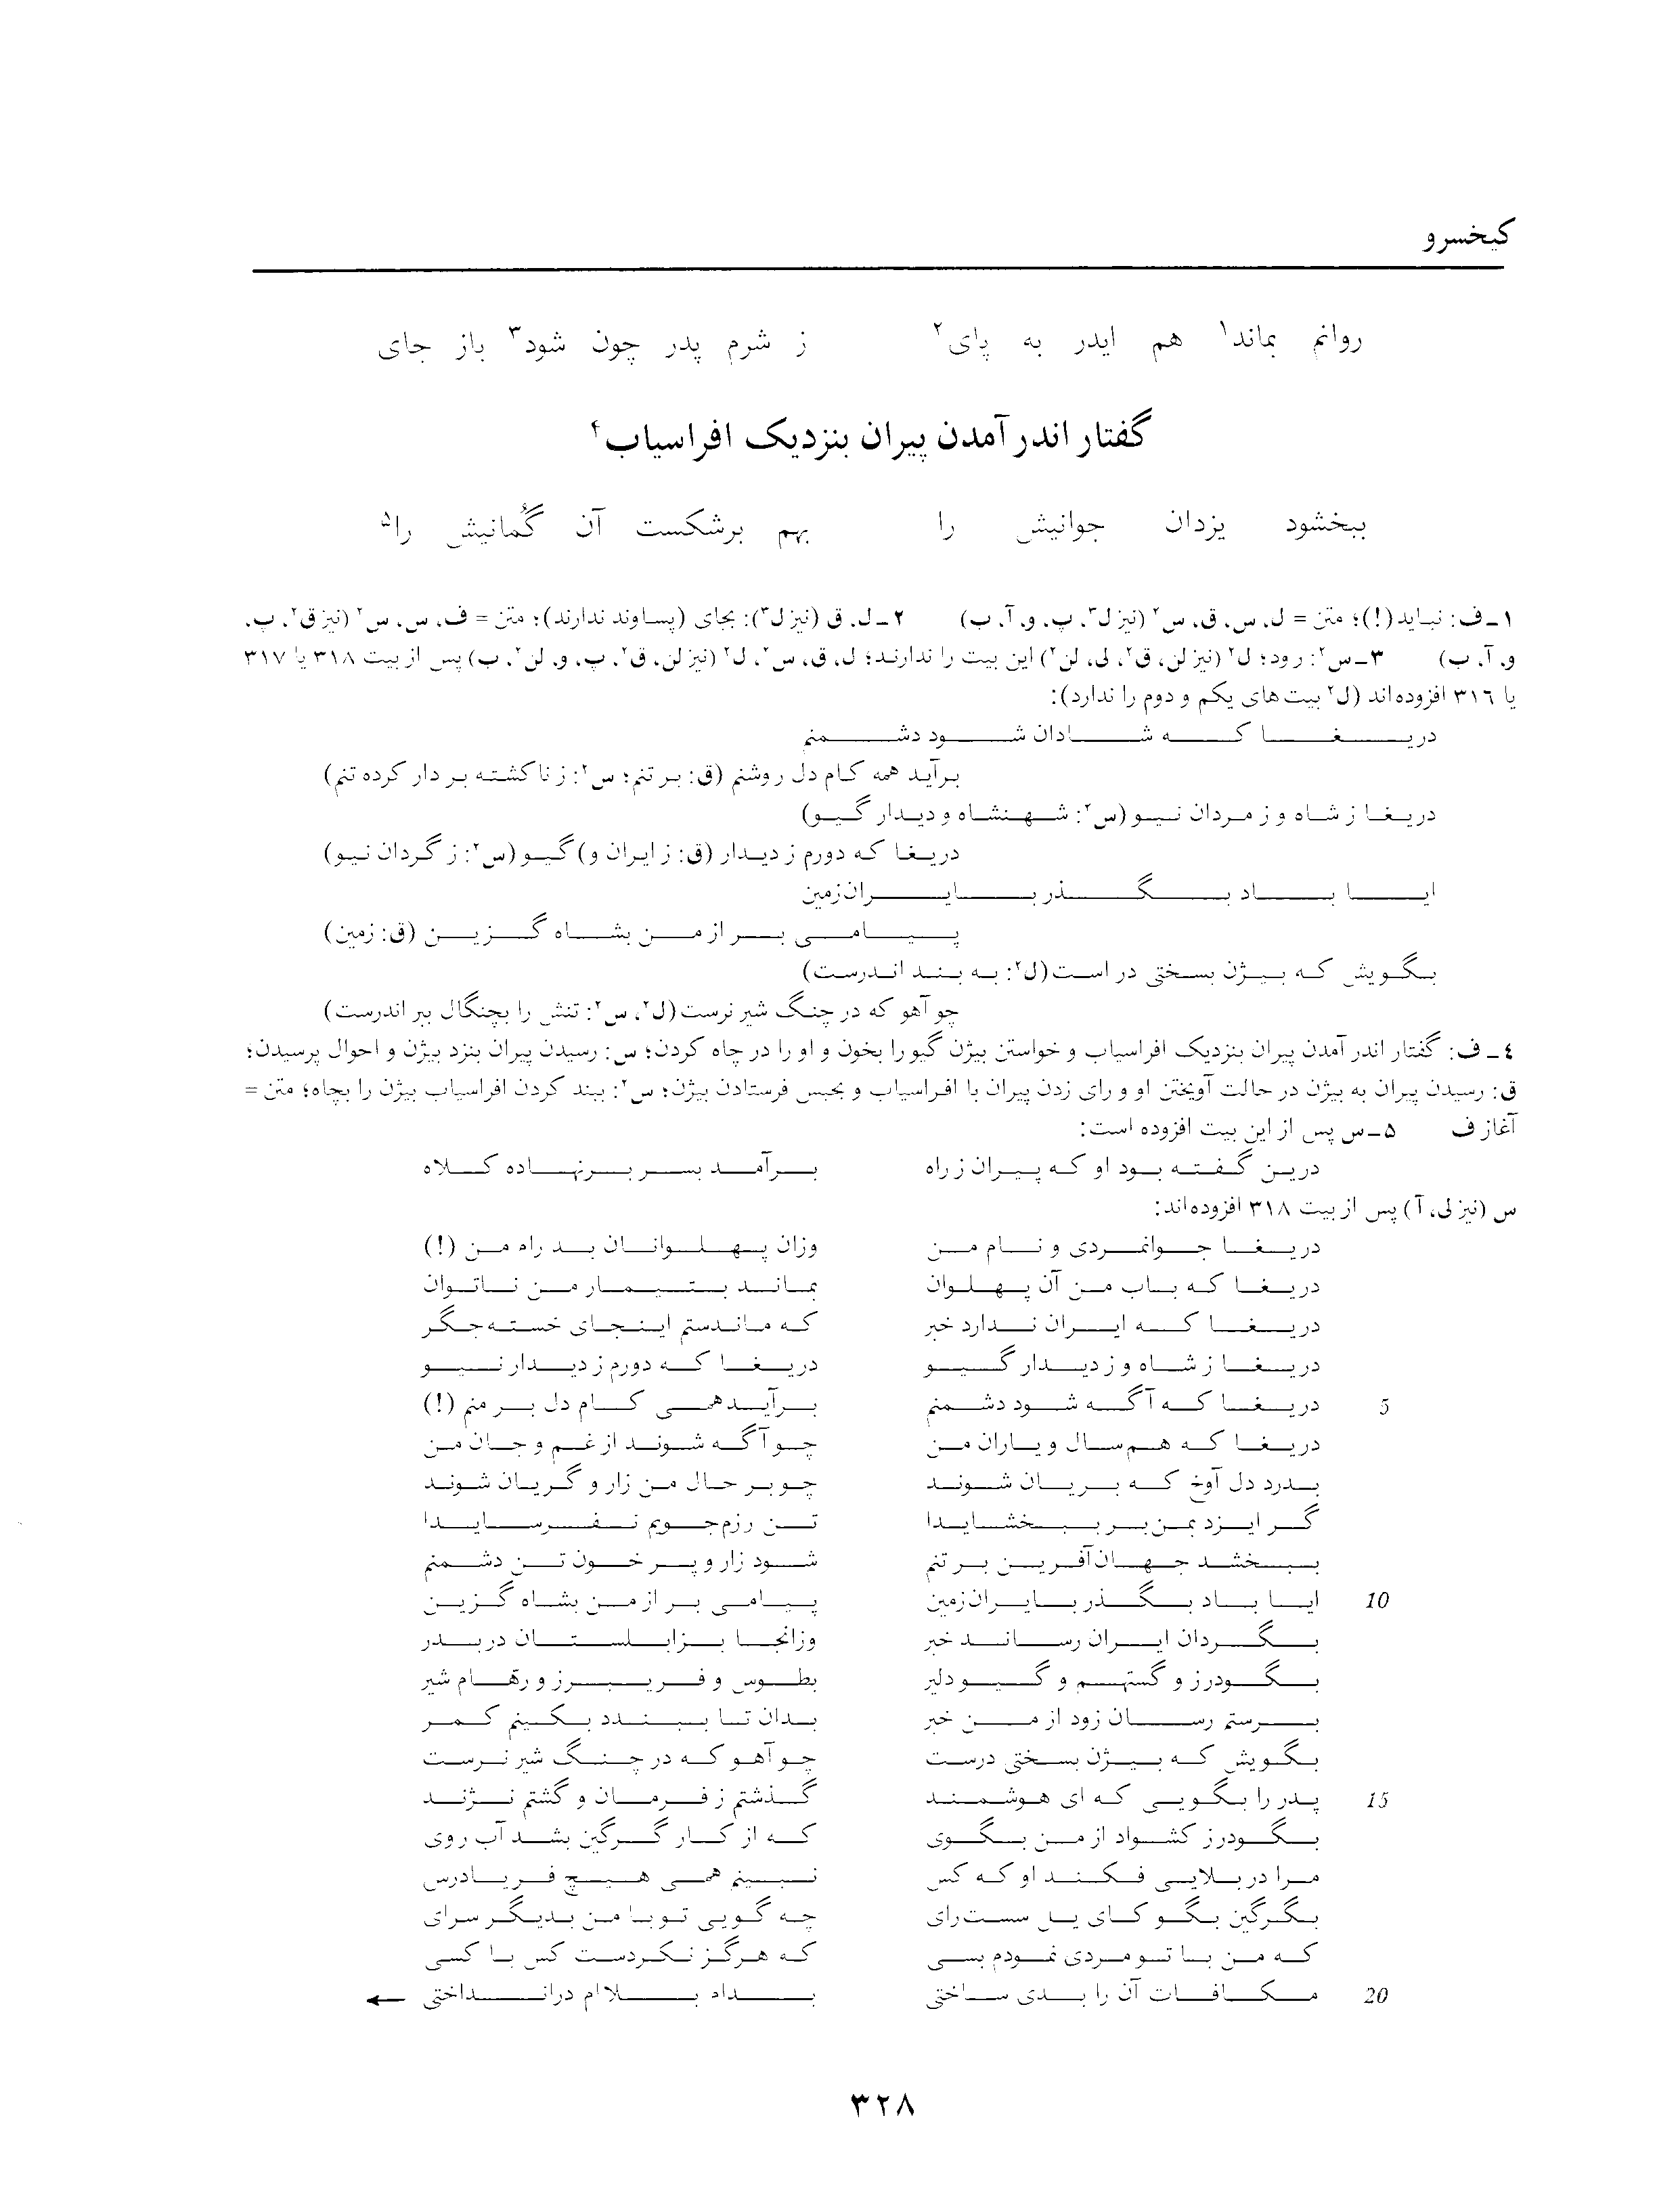 کیخسرو
روانم بماند۱ هم ایدر به پای۲ ز شرم پدر چون شود۳ باز جای
گفتار اندر آمدن پیران بنزدیک افراسیاب۴
ببخشود یزدان جوانیش را بهم برشکست آن گمانیش را۵
۱ـ ف: نباید(!)؛ متن = ل، س، ق، س۲ (نیز ل۳، پ، و، آ، ب) ۲ـ ل، ق (نیز ل۳): بجای (پساوند ندارند)؛ متن = ف، س، س۲ (نیز ق۲، پ،
و، آ، ب) ۳ـ س۲: رود؛ ل۲ (نیز لن، ق۲، لی، لن۲) این بیت را ندارند؛ ل، ق، س۲، ل۲ (نیز لن، ق۲، پ، و، لن۲، ب) پس از بیت ۳۱۸ یا ۳۱۷
یا ۳۱۶ افزوده‌اند (ل۲ بیت‌های یکم و دوم را ندارد):
دریغا که شادان شود دشمنم
برآید همه کام دل روشنم (ق: بر تنم؛ س۲: ز ناکشته بر دار کرده تنم)
دریغا ز شاه و ز مردان نیو (س۲: شهنشاه و دیدار گیو)
دریغا که دورم ز دیدار (ق: ز ایران و) گیو (س۲: ز گردان نیو)
ایا باد بگذر بایران‌زمین
پیامی بر از من بشاه گزین (ق: زمین)
بگویش که بیژن بسختی در است (ل۲: به بند اندرست)
چو آهو که در چنگ شیر نرست (ل۲، س۲: تنش را بچنگال ببر اندرست)
۴ـ ف: گفتار اندر آمدن پیران بنزدیک افراسیاب و خواستن بیژن گیو را بخون و او را در چاه کردن؛ س: رسیدن پیران بنزد بیژن و احوال پرسیدن؛
ق: رسیدن پیران به بیژن در حالت آویختن او و رای زدن پیران با افراسیاب و بحبس فرستادن بیژن؛ س۲: ببند کردن افراسیاب بیژن را بچاه؛ متن =
آغاز ف ۵ـ س پس از این بیت افزوده است:
درین گفته بود او که پیران ز راه برآمد بسر بر نهاده کلاه
س (نیز لی، آ) پس از بیت ۳۱۸ افزوده‌اند:
دریغا جوانمردی و نام من وزان پهلوانان بد راه من (!)
دریغا که باب من آن پهلوان بماند بتیمار من ناتوان
دریغا که ایران ندارد خبر که ماندستم اینجای خسته‌جگر
دریغا ز شاه و ز دیدار گیو دریغا که دورم ز دیدار نیو
5 دریغا که آگه شود دشمنم برآید همی کام دل بر منم (!)
دریغا که هم‌سال و یاران من چو آگه شوند از غم و جان من
بدرد دل آوخ که بریان شوند چو بر حال من زار و گریان شوند
گر ایزد بمن بر ببخشایدا تن رزم‌جویم نفرسایدا
ببخشد جهان‌آفرین بر تنم شود زار و پر خون تن دشمنم
10 ایا باد بگذر بایران‌زمین پیامی بر از من بشاه گزین
بگردان ایران رساند خبر وزانجا بزابلستان در بدر
بگودرز و گستهم و گیو دلیر بطوس و فریبرز و رهام شیر
برستم رسان زود از من خبر بدان تا ببندد بکینم کمر
بگویش که بیژن بسختی درست چو آهو که در چنگ شیر نرست
15 پدر را بگویی که ای هوشمند گذشتم ز فرمان و گشتم نژند
بگودرز کشواد از من بگوی که از کار گرگین بشد آب روی
مرا در بلایی فکند او که کس نبینم همی هیچ فریادرس
بگرگین بگو کای یل سست‌رای چه گویی تو با من بدیگر سرای
که من با تو مردی نمودم بسی که هرگز نکردست کس با کسی
20 مکافات آن را بدی ساختی بدام بلاام درانداختی ←
۳۲۸